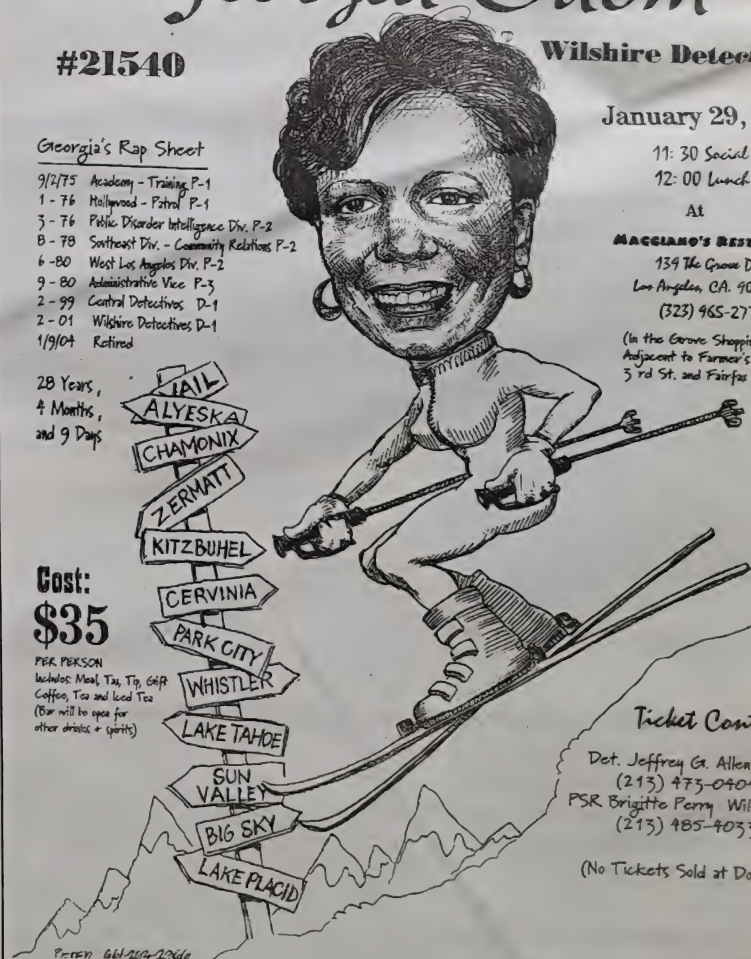 Georgia
#21540
Wilshire Detec
January 29,
11: 30 Social
12: 00 Lunch
At
MAGGIANO'S REST
139 The Grove D
Los Angeles, CA. 90
(323) 965-27
(In the Grove Shoppin
Adjacent to Farmer's
3 rd St. and Fairfax
Georgia's Rap Sheet
9/2/75 Academy - Training P-1
1 - 76 Hollywood - Patrol P-1
3 - 76 Public Disorder Intelligence Div. P-2
8 - 78 Southeast Div. - Community Relations P-2
6 - 80 West Los Angeles Div. P-2
9 - 80 Administrative Vice P-3
2 - 99 Central Detectives D-1
2 - 01 Wilshire Detectives D-1
1/9/04 Retired
28 Years,
4 Months,
and 9 Days
VAIL
ALYESKA
CHAMONIX
ZERMATT
KITZBUHEL
CERVINIA
PARK CITY
WHISTLER
LAKE TAHOE
SUN
VALLEY
BIG SKY
LAKE PLACID
Cost:
$35
PER PERSON
Includes: Meal, Tax, Tip, Gift
Coffee, Tea and Iced Tea
(Bar will be open for
other drinks + spirits)
Ticket Cont
Det. Jeffrey G. Allen
(213) 473-040
PSR Brigitte Perry Wil
(213) 485-403
(No Tickets Sold at Do